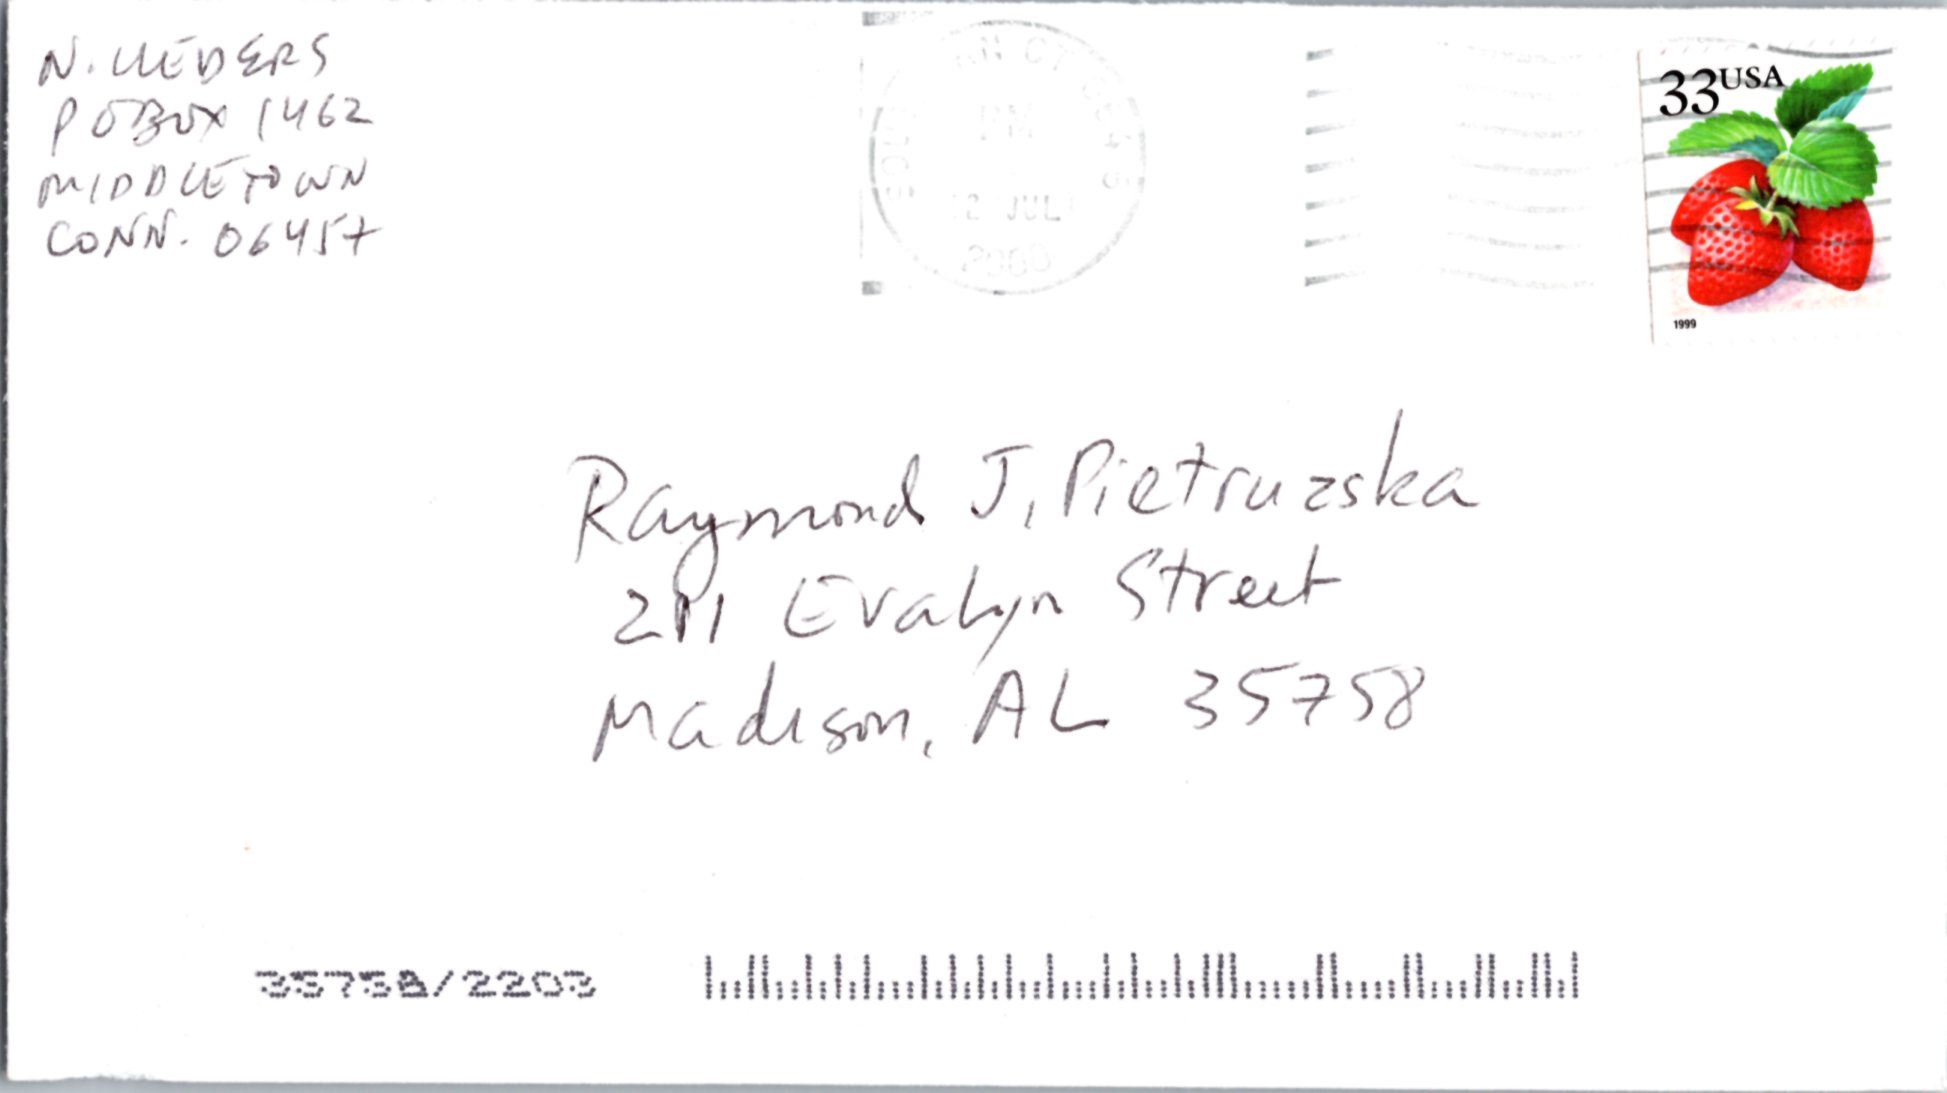 N. LUEDERS
PO BOX 1462
MIDDLETOWN
CONN. 06457
PM
12 JUL
2000
33USA
1999
Raymond J. Pietruzska
211 Evalyn Street
Madison, AL 35758
35758/2203